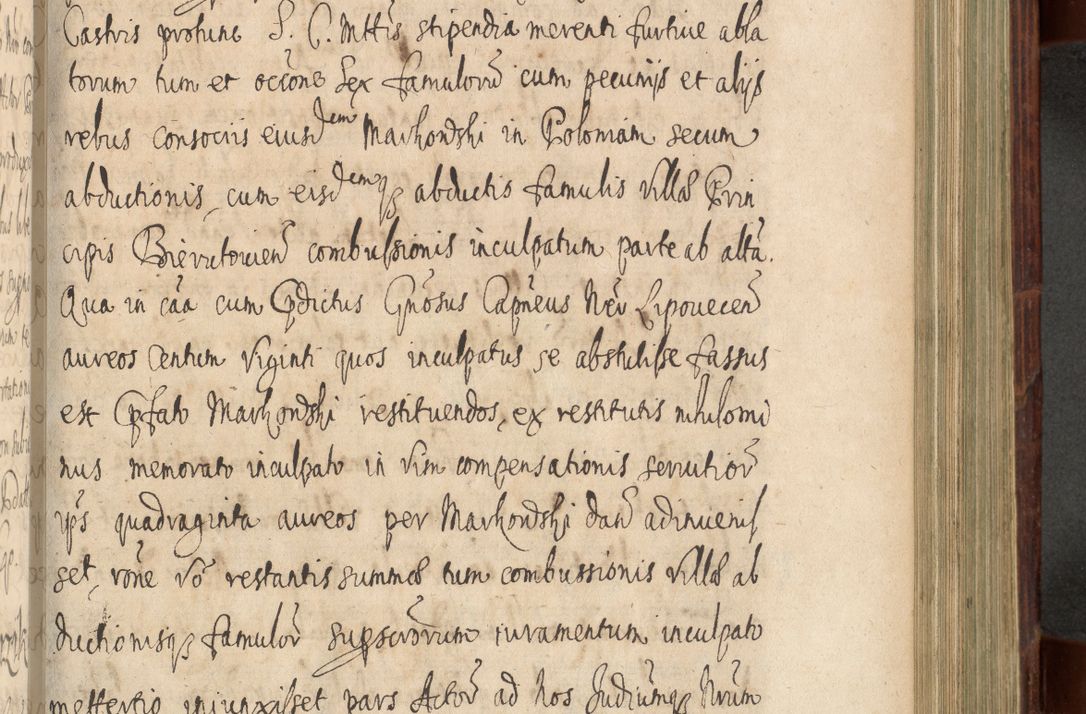 Castris protunc S. C. Mttis stipendia merenti furtive abla
torum tum et occone sex famulorũ cum pecunijs et alijs
rebus consocris eiusdem Markondski in Poloniam secum
abductionis, cum eisdemqz abductis famulis villæ Prin
cipis Bierutovien combussionis inculpatum parte ab alta.
Qua in caa cum Pdictus Gnosus Capneus Nẽr Lipovecen
aureos Centum viginti quos inculpatus se abstulisse fassus
est Pfato Markondski restituendos, ex restitutis nihilomi
nus memorato inculpato in vim compensationis servitior
ips quadraginta aureos per Markondski dari adinvenis
set, rone vo restantis summæ tum combussionis villæ ab
ductionisqz famulor supscrorum iuramentum inculpato
mettertio iniunxisset pars Actor ad Nos Judiumqz Nrum